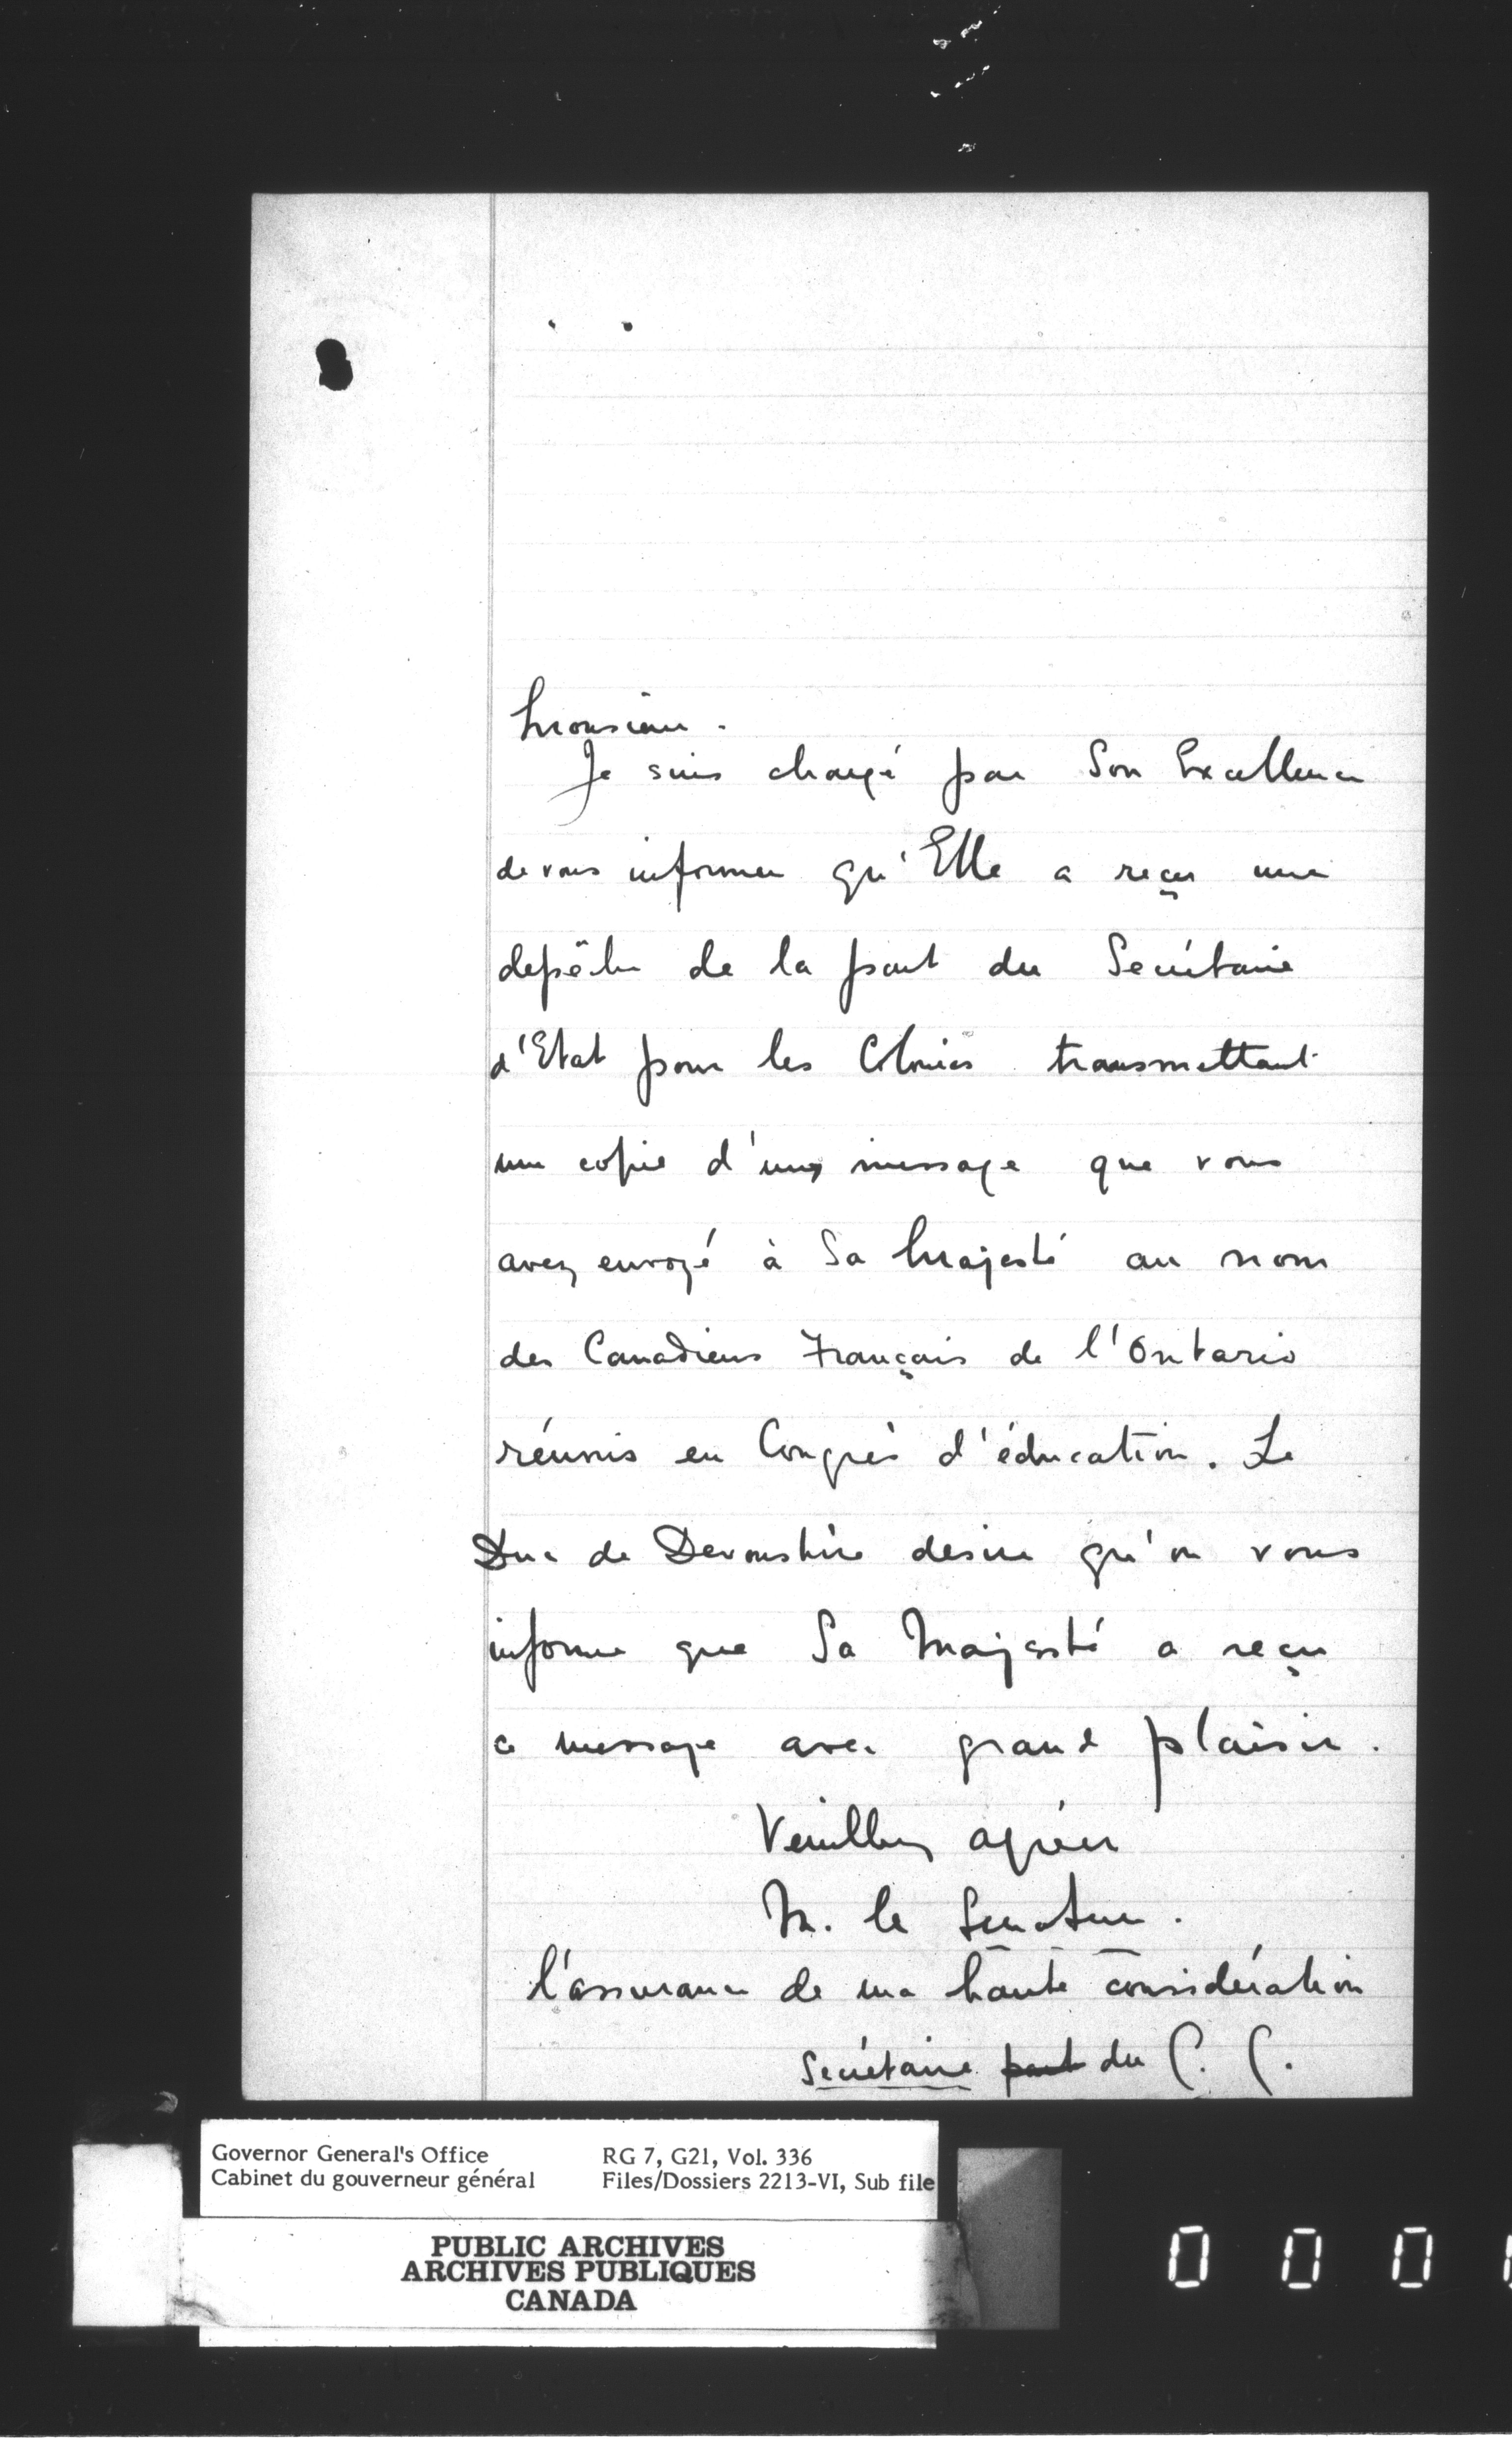 Monsieur.
Je suis chargé par Son Excellence
de vous informer qu'Elle a reçu une
depêche de la part du Secrétaire
d'Etat pour les Colonies transmettant
une copie d'un message que vous
avez envoyé à Sa Majesté au nom
des Canadiens Français de l'Ontario
réunis en Congrès d'éducation. Le
Duc de Devonshire desire qu'on vous
informe que Sa Majesté a reçu
ce message avec grand plaisir.
Veuillez agréer
M. le Senateur.
l'assurance de ma haute considération
Secrétaire part du
Governor General's Office RG 7, G21, Vol. 336
Cabinet du gouverneur général Files/Dossiers 2213-VI, Sub file
PUBLIC ARCHIVES
ARCHIVES PUBLIQUES
CANADA
0 0 0